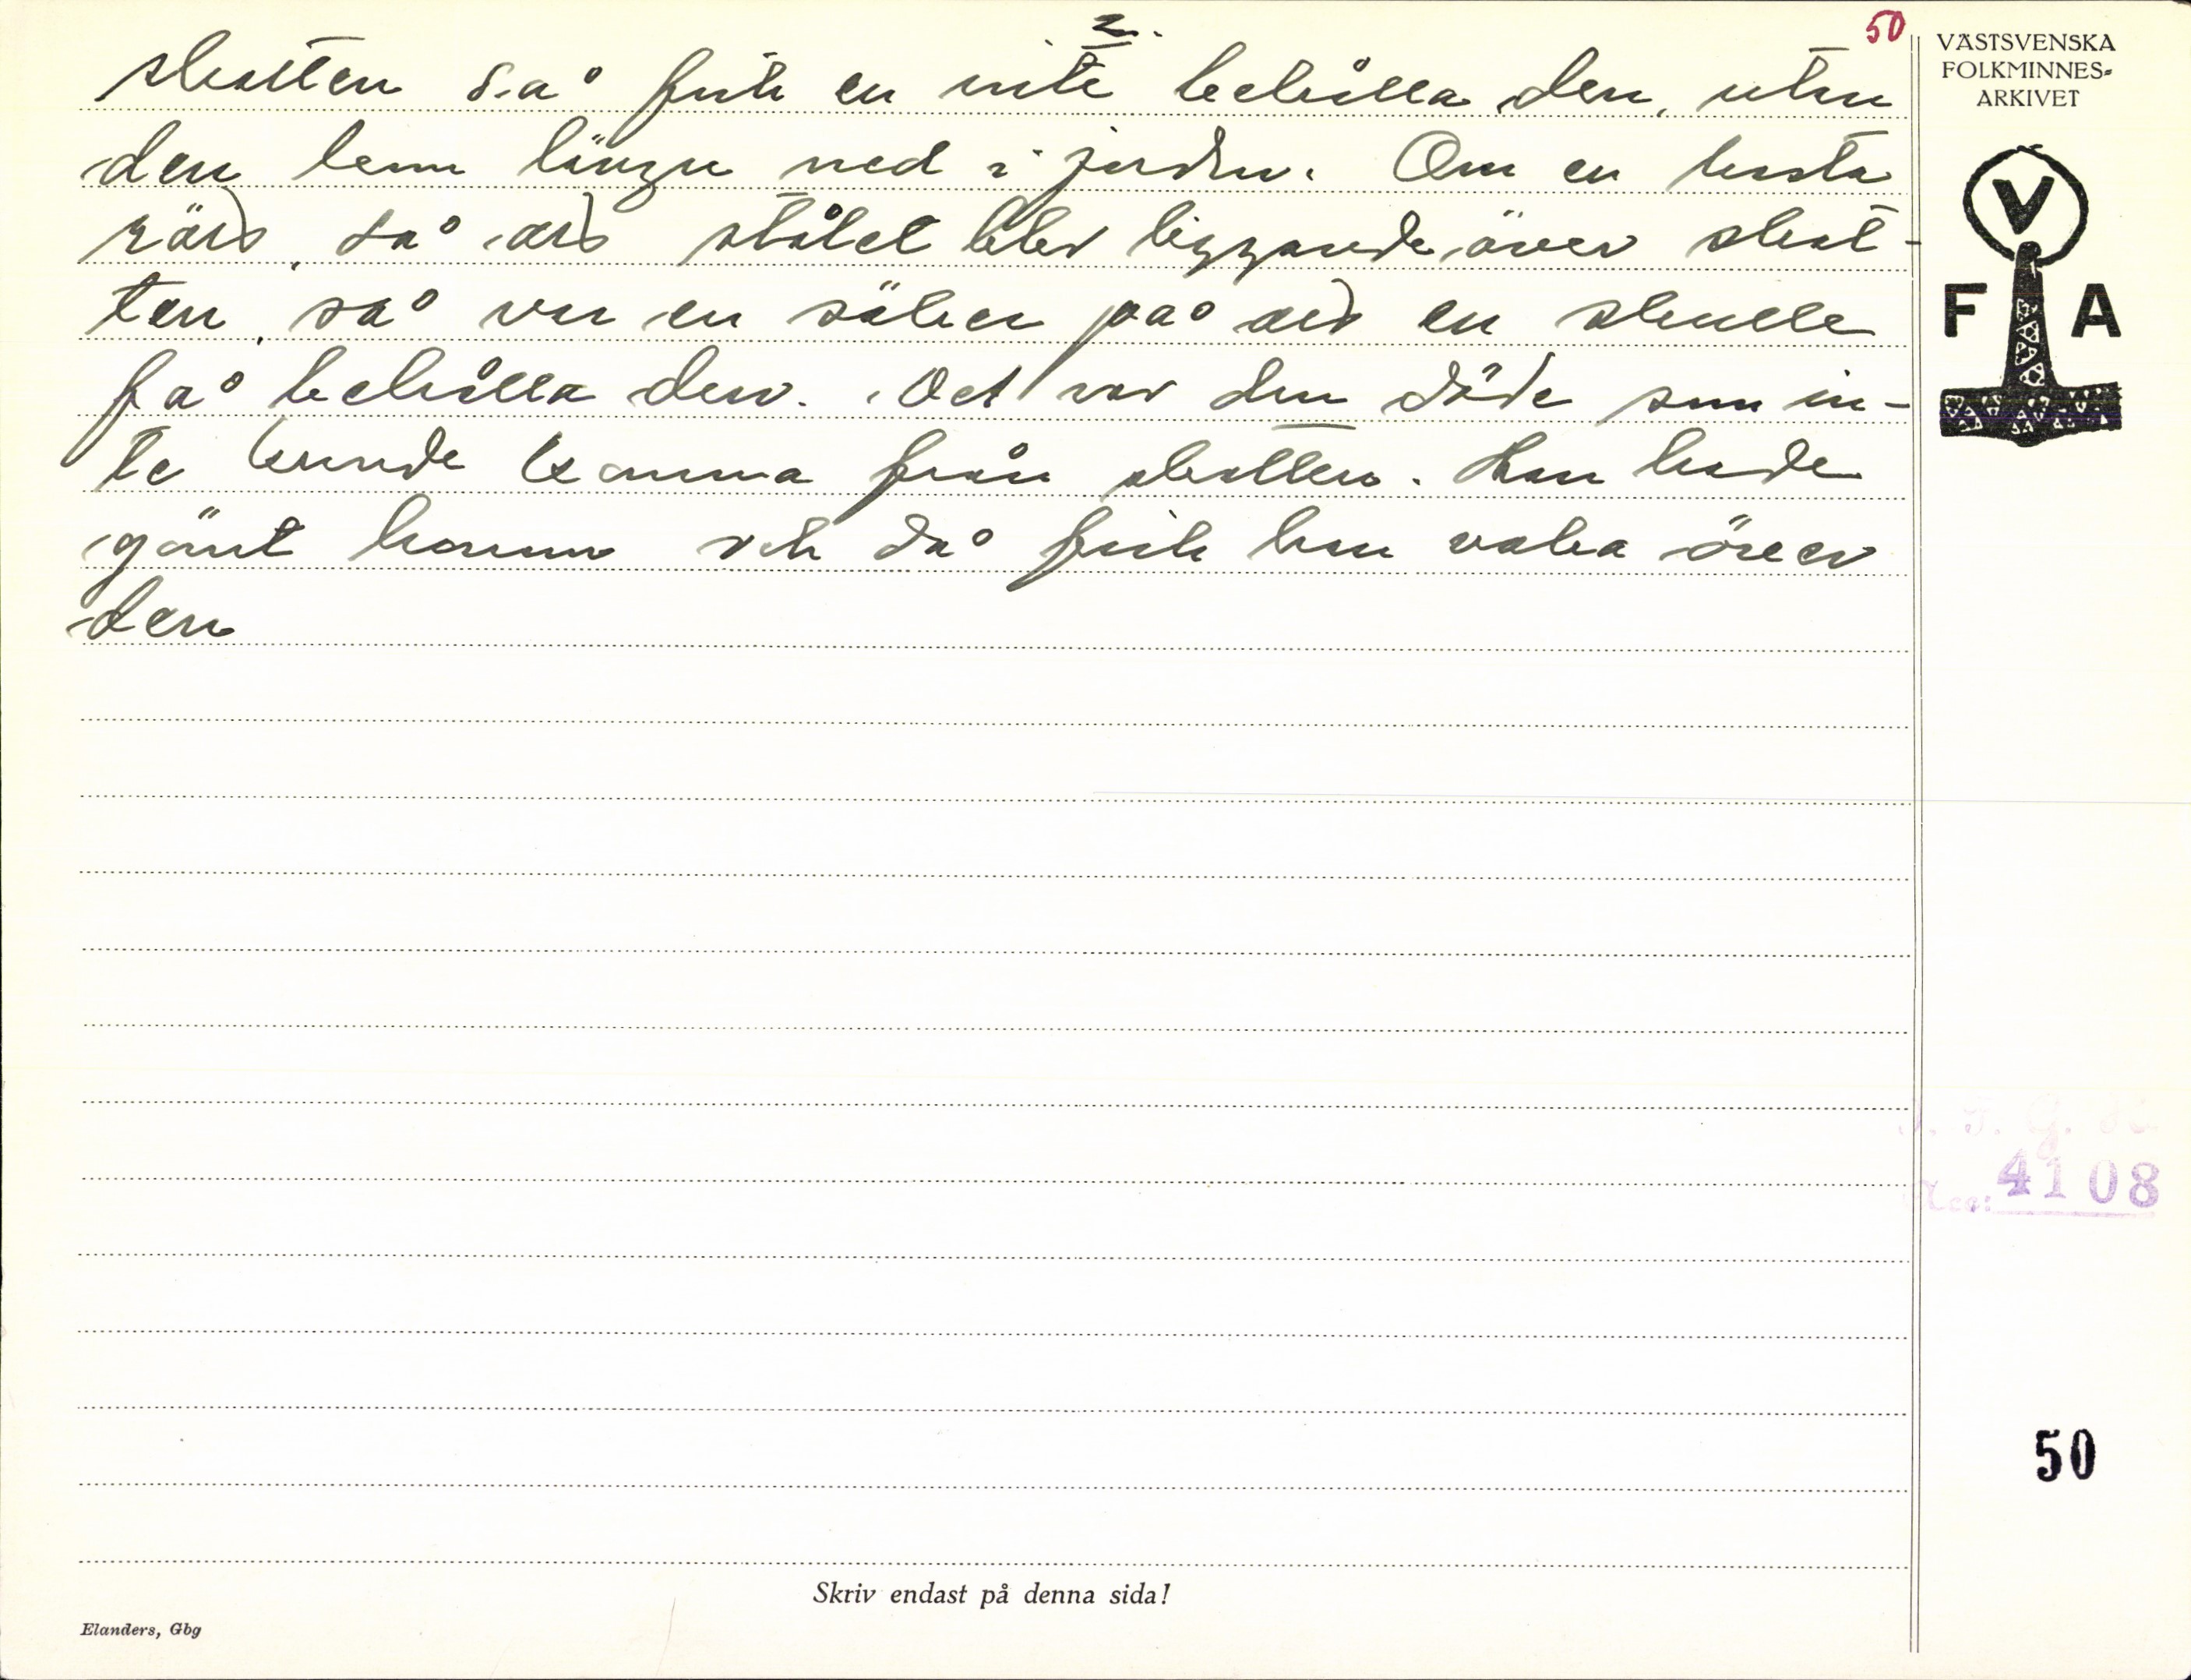 2.
50
skatten så fick en inte behålla den, utan
den kom längre ned i jorden. Om en kasta
rätt, så att stålet blev liggande över skat-
ten, så var en säker på att en skulle
få behålla den. Det var den döde som in-
te kunde komma från skatten. Han hade
gömt honom och då fick han vaka över
den
VÄSTSVENSKA
FOLKMINNES-
ARKIVET
V
F A
Acc: 4108
50
Skriv endast på denna sida!
Elanders, Gbg